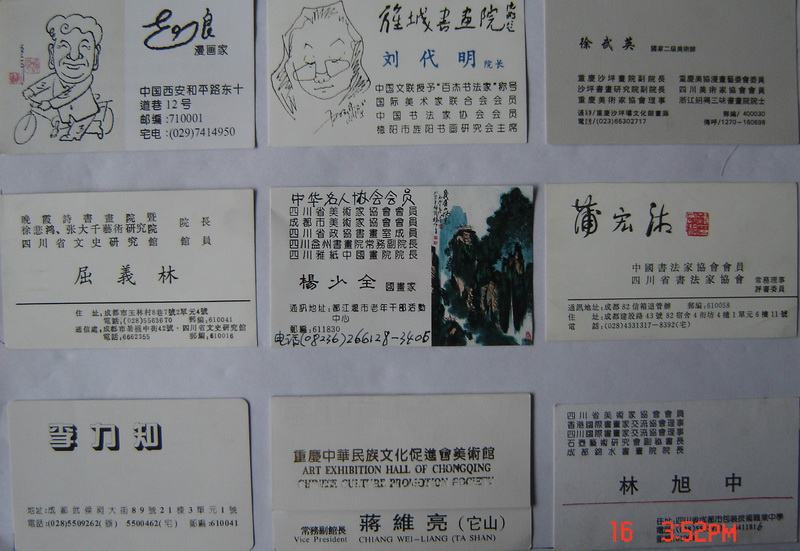 漫画家
中国西安和平路东十
道巷12号
邮编:710001
宅电:(029)7414950
雒城書画院
刘代明 院长
中国文联授予"百杰书法家"称号
国际美术家联合会会员
中国书法家协会会员
书画研究会主席
徐武英 國家二級美術師
重慶沙坪畫院副院長 重慶美協漫畫藝委會委員
沙坪書畫研究院副院長 四川美術家協會會員
重慶美術家協會理事 浙江紹興三味書畫院院士
郵編/400030
電話/(023)65302717 傳呼/1270-160698
晚霞詩書畫院暨 院長
徐悲鴻、张大千藝術研究院
四川省文史研究館 館員
屈義林
住 址:成都市玉林村8巷7號2單元4號
電話:(028)5583670 郵編:610041
通信處:成都市basic
電話:6662355 郵編:610016
中华名人协会会员
四川省美術家協會會員
成都市美術家協會會員
四川省政協書畫室成員
四川益州書畫院常務副院長
四川雅紙中國畫院院長
楊少全 國畫家
通訊地址:都江堰市老年干部活動
中心
郵編:611830
电话(08236)266128-3405
蒲宏湘
中國書法家協會會員
四川省書法家協會 常務理事
評審委員
通訊地址:成都82信箱道管辦 郵編:610058
住 址:成都建設路43號82宿舍4街坊4棟1單元6樓11號
電 話:(028)4331317-8392(宅)
李力知
地址:成都武侯祠大街89號21棟3單元1號
電話:(028)5509262(辦) 5500462(宅) 郵編:610041
重慶中華民族文化促進會美術館
ART EXHIBITION HALL OF CHONGQING
CHINESE CULTURE PROMOTION SOCIETY
常務副館長 蔣維亮(它山)
Vice President CHIANG WEI-LIANG (TA SHAN)
四川省美術家協會會員
香港國際書畫家交流協會理事
四川國際書畫家交流協會理事
石壺藝術研究會副秘書長
成都錦水書畫院院長
林旭中
16 3:52PM